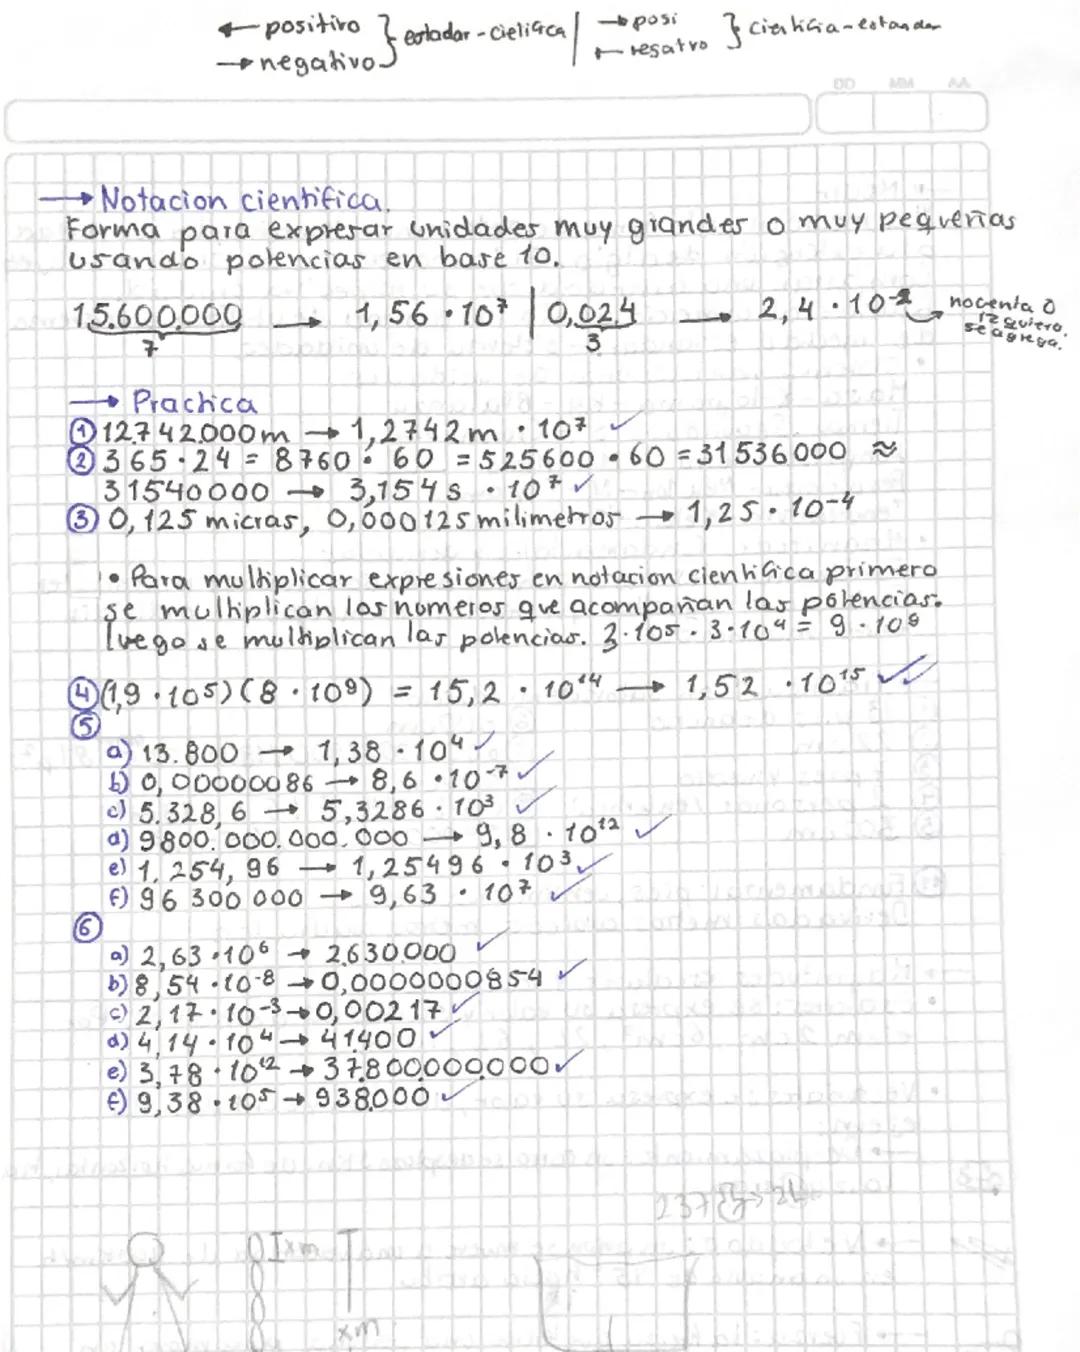 ← positivo } estadar - cieliGca | → posi } cientiGia - estandar
→ negativo | ← resatvo
DD MM AA
→ Notacion cientifica.
Forma para expresar unidades muy grandes o muy pequeñas
usando potencias en base 10.
15.600.000 → 1,56 · 10⁷ | 0,024 → 2,4 · 10⁻² nocenta 0
7 3 izquiero.
se agrega.
→ Practica
① 12.742.000m → 1,2742m · 10⁷ ✓
② 365 · 24 = 8760 · 60 = 525600 · 60 = 31536000 ≈
31540000 → 3,154s · 10⁷ ✓
③ 0,125 micras, 0,000125 milimetros → 1,25 · 10⁻⁴
• Para multiplicar expresiones en notacion cientiGica primero
se multiplican los numeros que acompañan las potencias.
luego se multiplican las potencias. 3·10⁵ · 3·10⁴ = 9 · 10⁹
④ (1,9 · 10⁵)(8 · 10⁹) = 15,2 · 10¹⁴ → 1,52 · 10¹⁵ ✓✓
⑤
a) 13.800 → 1,38 · 10⁴ ✓
b) 0,00000086 → 8,6 · 10⁻⁷ ✓
c) 5.328,6 → 5,3286 · 10³ ✓
d) 9800.000.000.000 → 9,8 · 10¹² ✓
e) 1.254,96 → 1,25496 · 10³ ✓
f) 96 300 000 → 9,63 · 10⁷ ✓
⑥
a) 2,63 · 10⁶ → 2.630.000 ✓
b) 8,54 · 10⁻⁸ → 0,0000000854 ✓
c) 2,17 · 10⁻³ → 0,00217 ✓
d) 4,14 · 10⁴ → 41.400 ✓
e) 3,78 · 10¹² → 37.800.000.000 ✓
f) 9,38 · 10⁵ → 938.000 ✓
237
1xm
xm